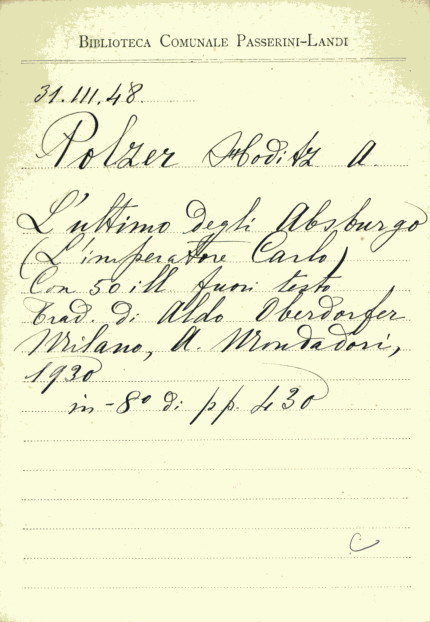 BIBLIOTECA COMUNALE PASSERINI-LANDI
31.III.48.
Polzer Hoditz A.
L'ultimo degli Absburgo
(L'imperatore Carlo)
Con 50 ill fuori testo
Trad. di Aldo Oberdorfer
Milano, A. Mondadori,
1930
in-8º di pp. 430
C